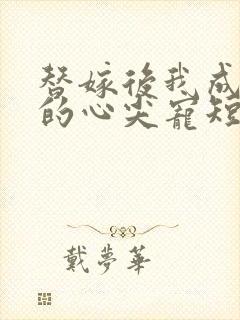 替嫁後我成
的心尖寵短
戴夢華